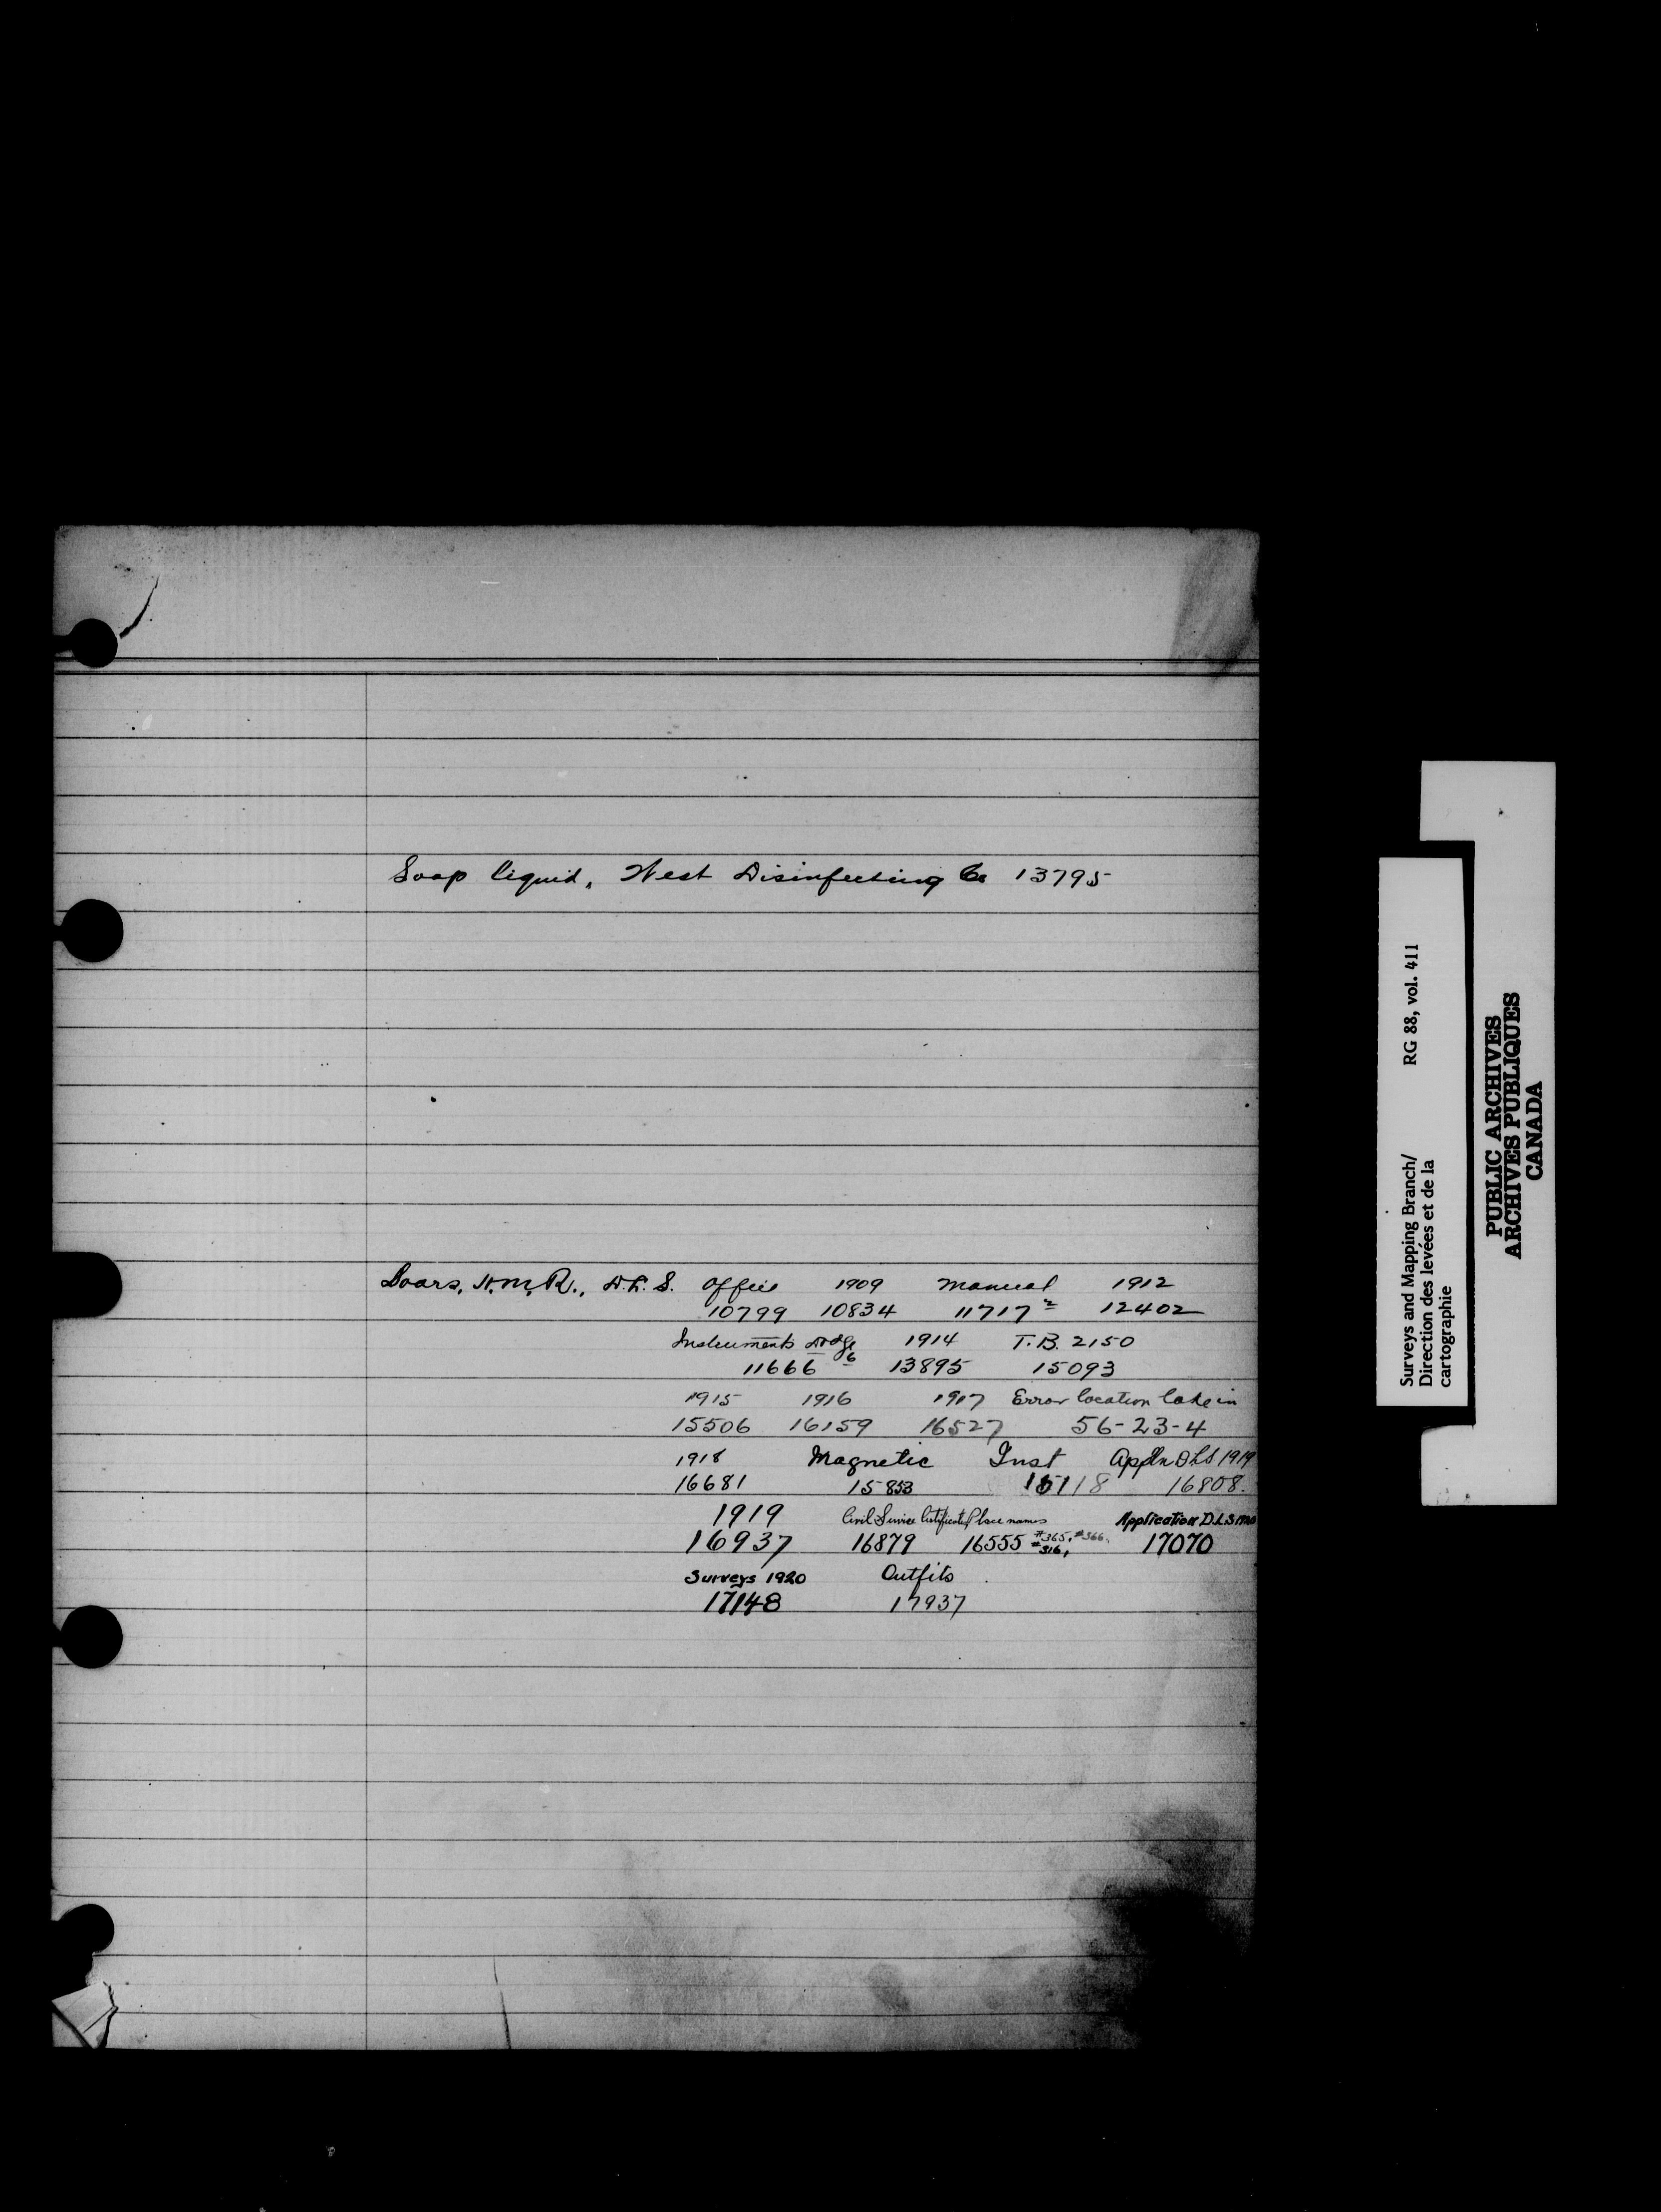 Soap liquid, West Disinfecting Co 13795
Soars, H.M.R., D.L.S. Office 1909 Manual 1912
10799 10834 11717 2 12402
Instruments 1914 T.B. 2150
11666 6 13895 15093
1915 1916 1917 Error location lake in
15506 16159 16527 56-23-4
1918 Magnetic Inst Appln DLS 1919
16681 15853 16808.
1919 Civil Service Certificate Place names Application D.L.S.
16937 16879 16555 #365, #366, #316, 17070
Surveys 1920 Outfits
17148 17937
Surveys and Mapping Branch/ RG 88, vol. 411
Direction des levées et de la
cartographie
PUBLIC ARCHIVES
ARCHIVES PUBLIQUES
CANADA